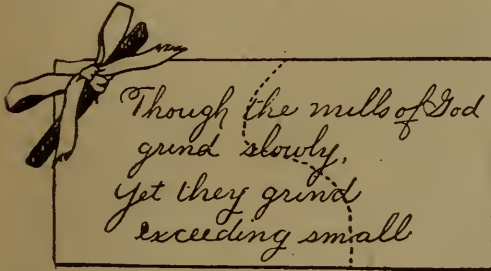 Though the mills of God
grind slowly,
yet they grind
exceeding small